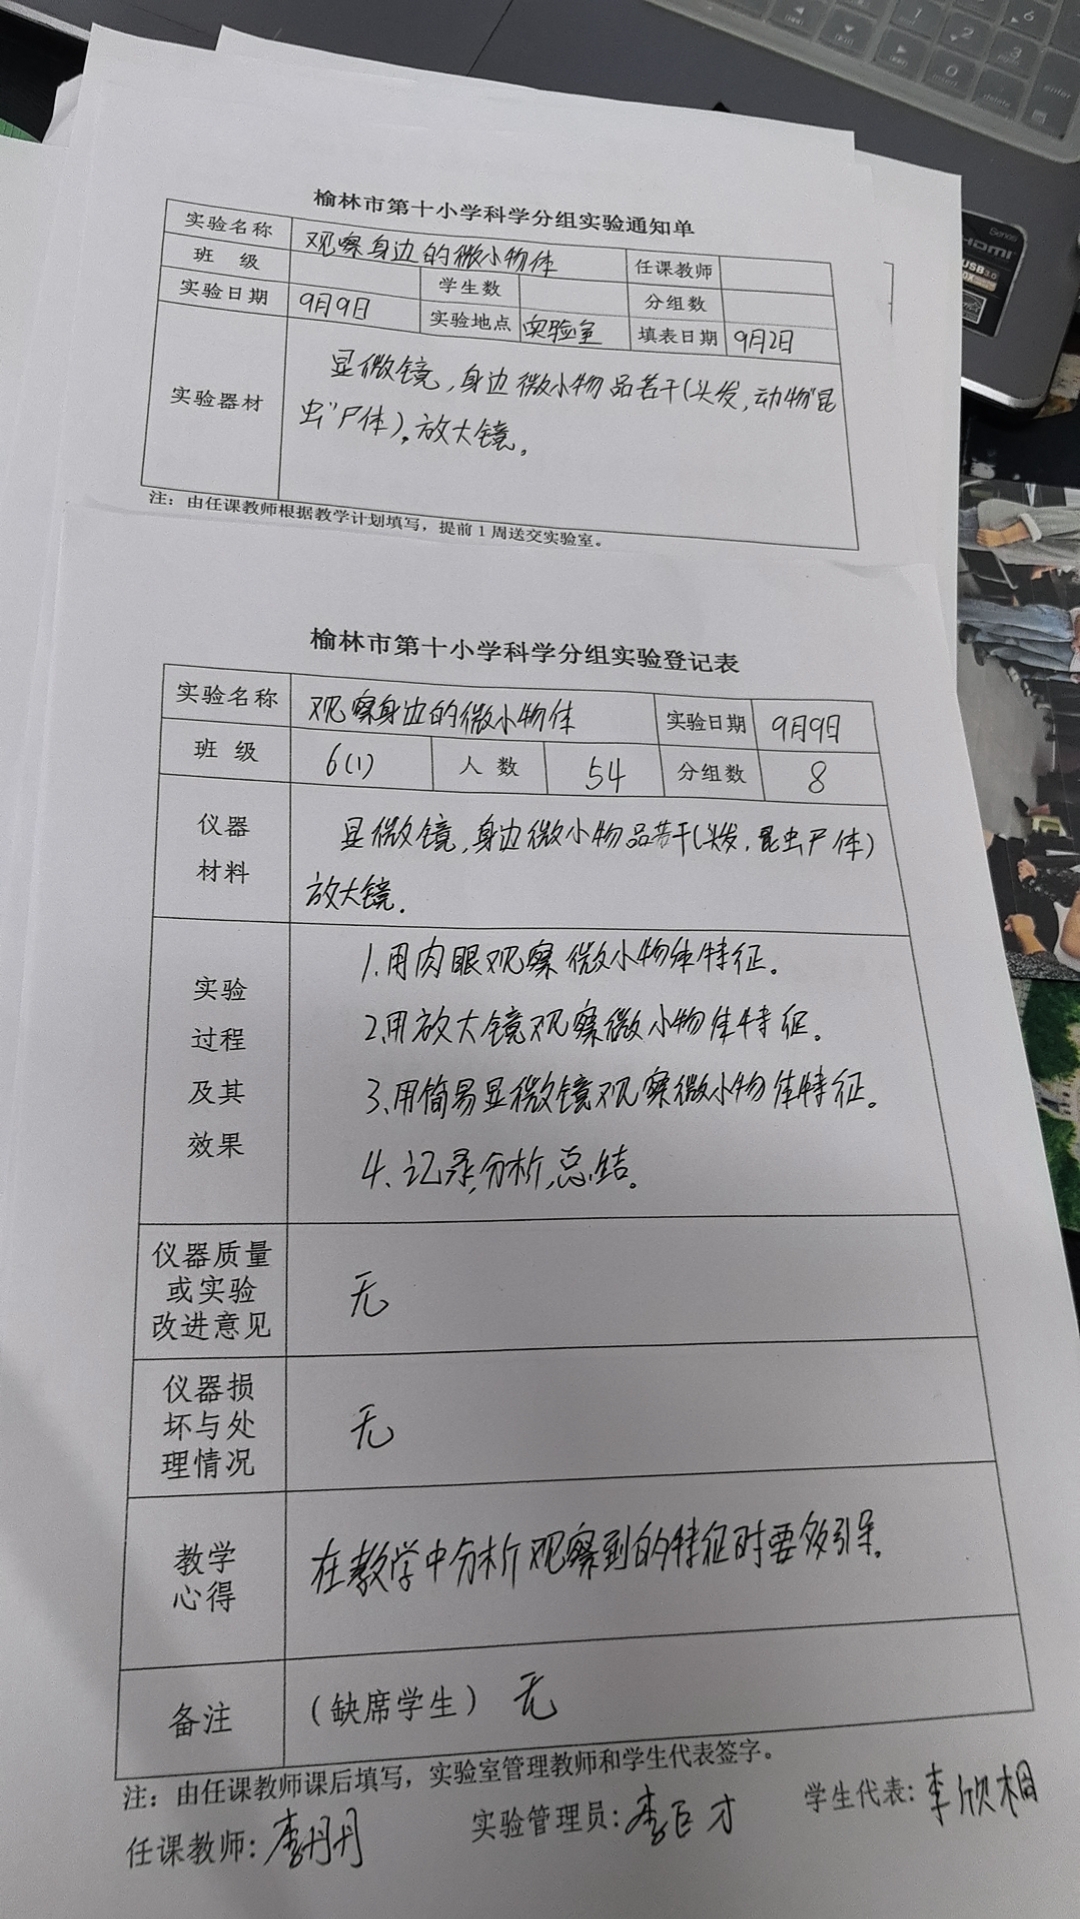 榆林市第十小学科学分组实验通知单
实验名称 观察身边的微小物体 任课教师
班 级 学生数 分组数
实验日期 9月9日 实验地点 实验室 填表日期 9月2日
实验器材 显微镜,身边微小物品若干(头发,动物"昆
虫"尸体)。放大镜。
注：由任课教师根据教学计划填写，提前1周送交实验室。
榆林市第十小学科学分组实验登记表
实验名称 观察身边的微小物体 实验日期 9月9日
班 级 6(1) 人 数 54 分组数 8
仪器
材料
显微镜,身边微小物品若干(头发,昆虫尸体)
放大镜.
实验
过程
及其
效果
1.用肉眼观察微小物体特征。
2.用放大镜观察微小物体特征。
3、用简易显微镜观察微小物体特征。
4、记录,分析,总结。
仪器质量
或实验
改进意见
无
仪器损
坏与处
理情况
无
教学
心得
在教学中分析观察到的特征时要多引导。
备注 （缺席学生） 无
注：由任课教师课后填写，实验室管理教师和学生代表签字。
任课教师:李丹丹 实验管理员:李巨才 学生代表:李欣桐
Series
HDMI
USB3.0